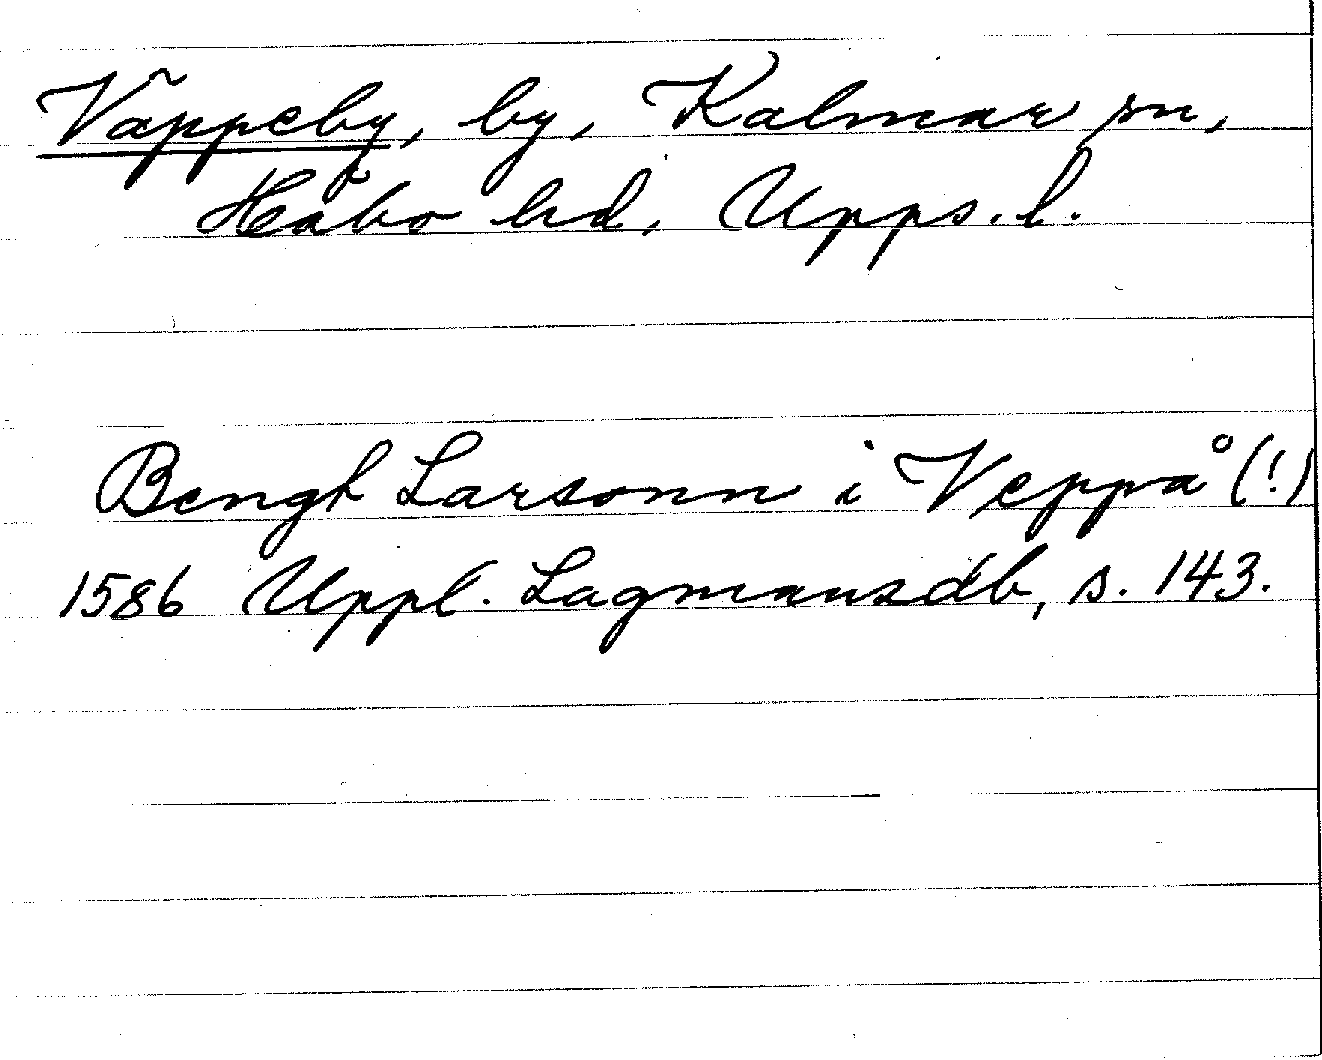 Väppeby, by, Kalmar sn,
Håbo hd, Upps. l.
Bengt Larsonn i Veppå (!)
1586 Uppl. Lagmansdb, s. 143.